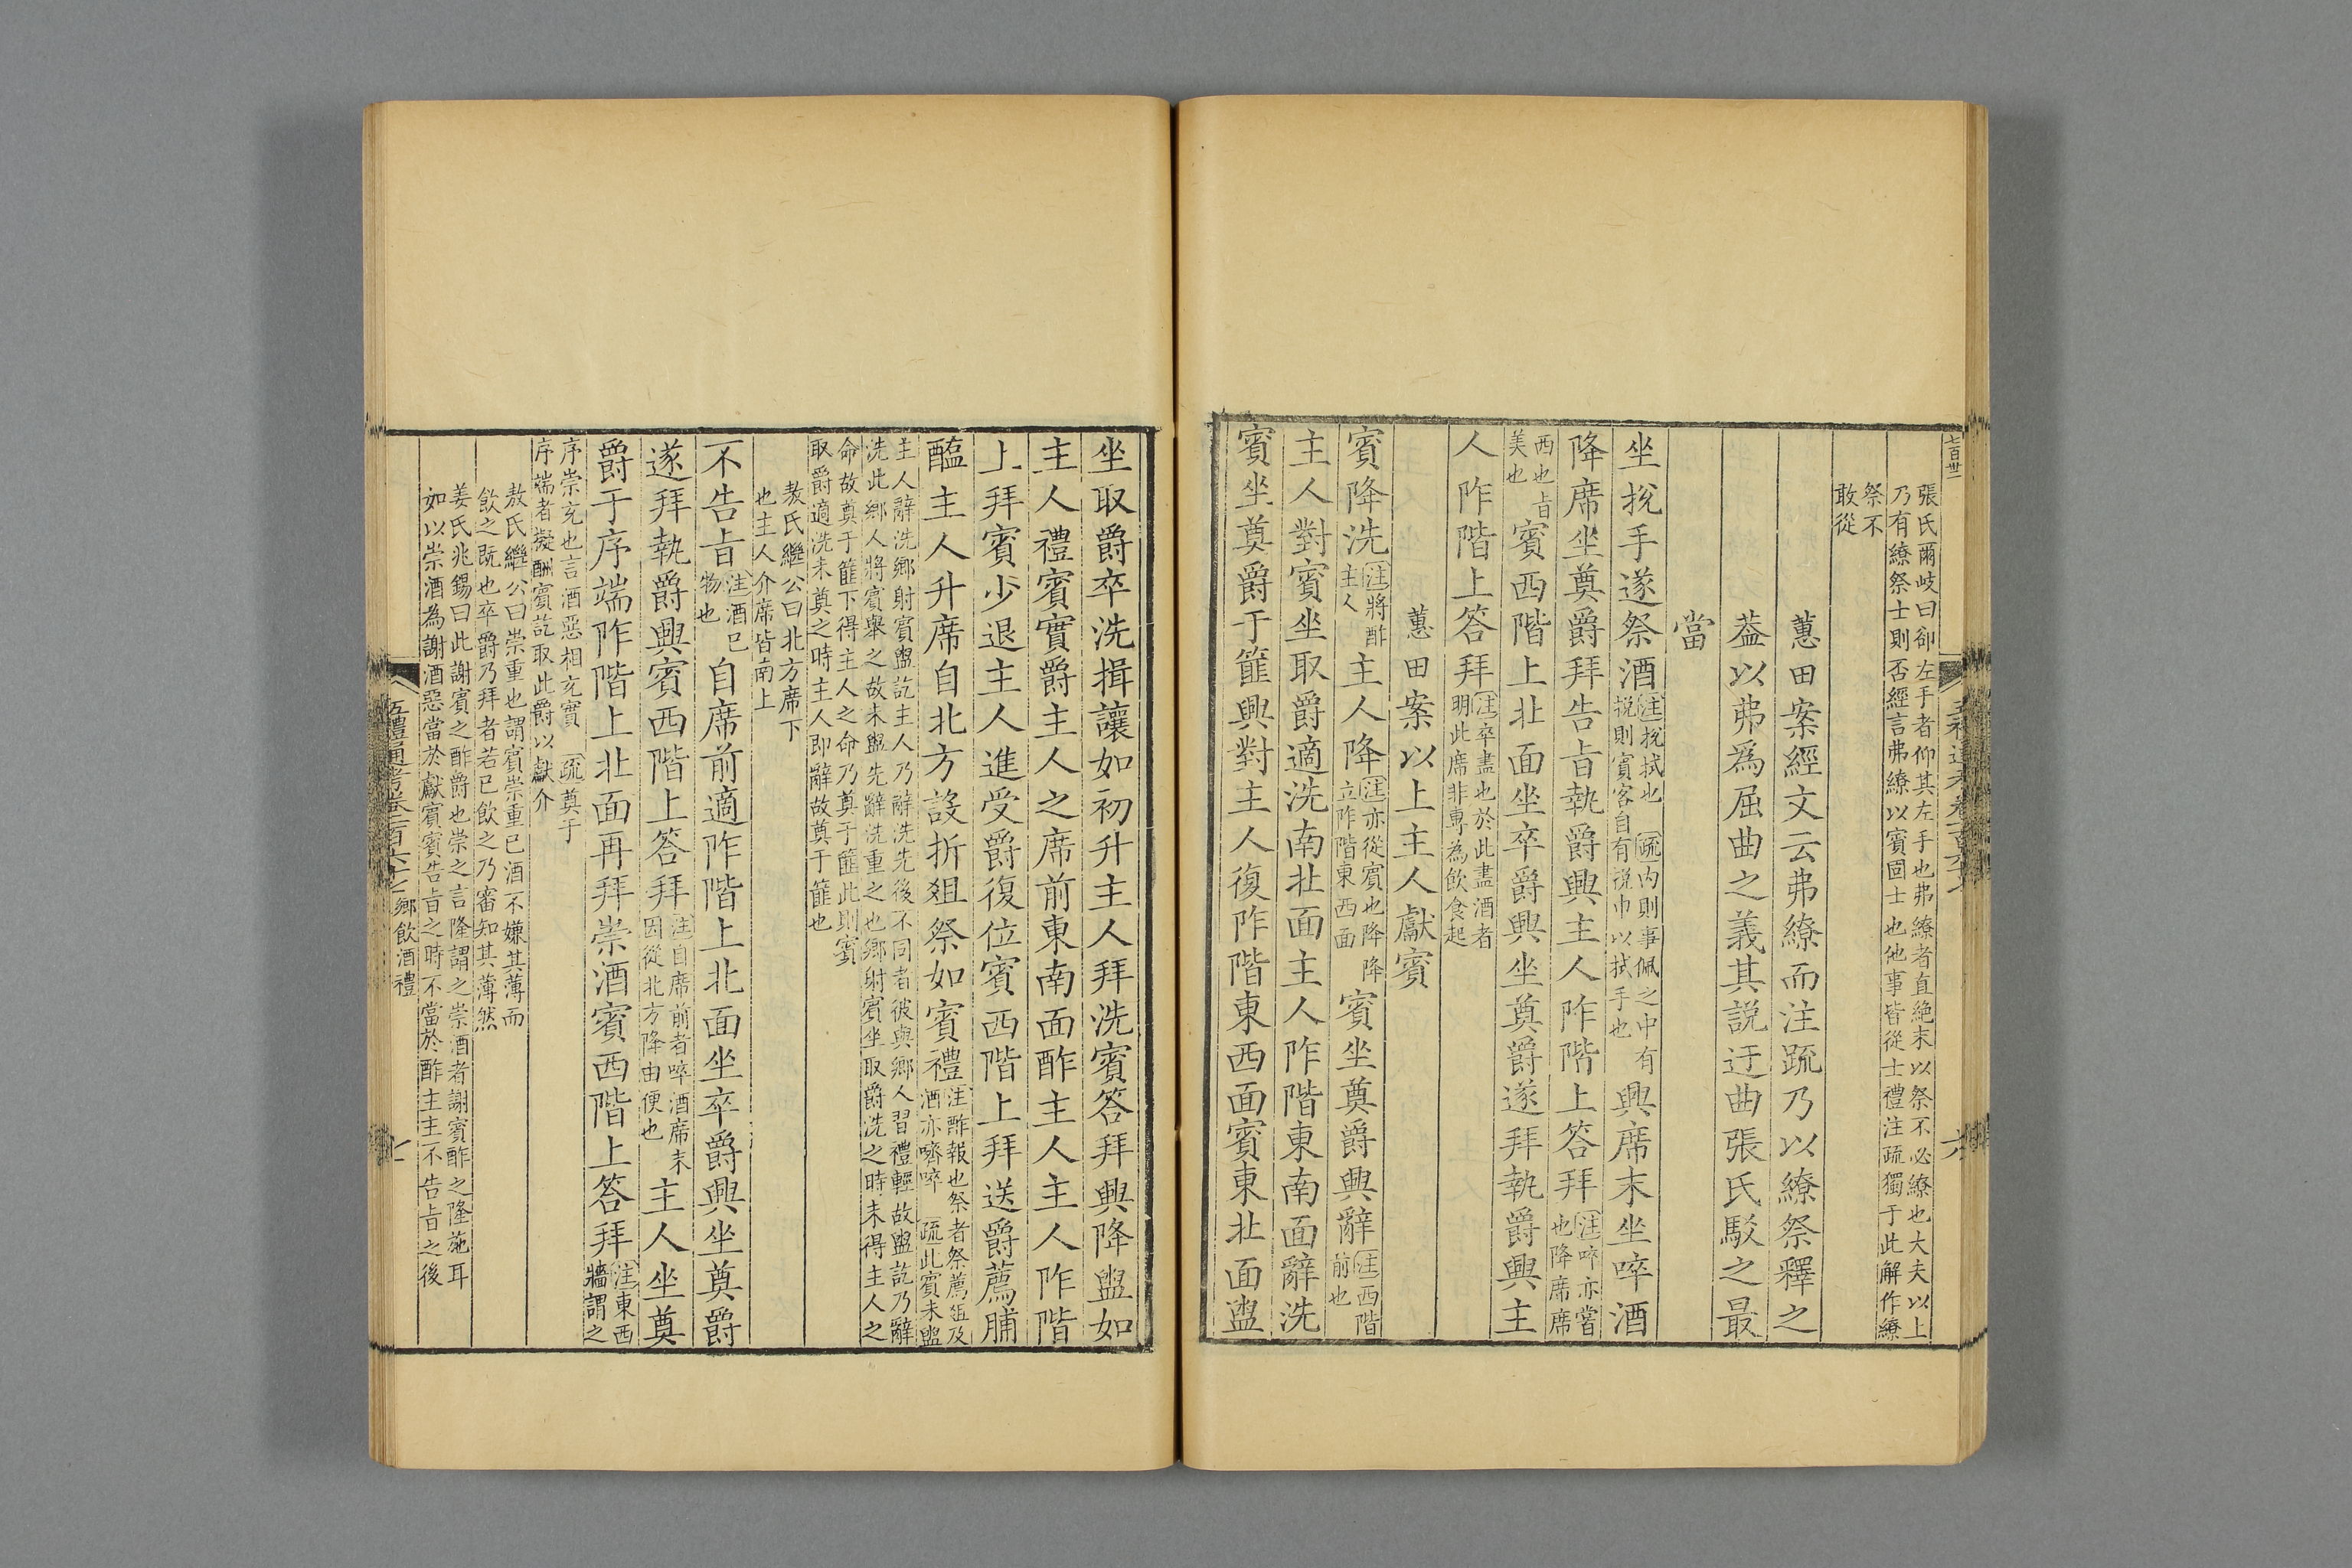 七百卅一
張氏爾岐曰卻左手者仰其左手也弗繚者直絶末以祭不必繚也大夫以上
乃有繚祭士則否經言弗繚以賓固士也他事皆從士禮注疏獨于此解作繚
祭不
敢從
蕙田案經文云弗繚而注疏乃以繚祭釋之
葢以弗爲屈曲之義其説迂曲張氏駁之最
當
坐挩手遂祭酒
注挩拭也
疏内則事佩之中有
挩則賓客自有帨巾以拭手也
興席末坐啐酒
注啐亦嘗
也
降席坐奠爵拜告旨執爵興主人阼階上答拜
降席席
西也旨
美也
賓西階上北面坐卒爵興坐奠爵遂拜執爵興主
人阼階上答拜
注卒盡也於此盡酒者
明此席非專為飲食起
蕙田案以上主人獻賓
賓降洗
注將酢
主人
主人降
注亦從賓也降降
立阼階東西面
賓坐奠爵興辭
注西階
前也
主人對賓坐取爵適洗南北面主人阼階東南面辭洗
賓坐奠爵于篚興對主人復阼階東西面賓東北面盥
六
坐取爵卒洗揖讓如初升主人拜洗賓答拜興降盥如
主人禮賓實爵主人之席前東南面酢主人主人阼階
上拜賓少退主人進受爵復位賓西階上拜送爵薦脯
醢主人升席自北方設折俎祭如賓禮
注酢報也祭者祭薦俎及
酒亦嚌啐
疏此賓未盥
主人辭洗鄉射賓盥訖主人乃辭洗先後不同者彼與鄉人習禮輕故盥訖乃辭
洗此鄉人將賓舉之故未盥先辭洗重之也鄉射賓坐取爵洗之時未得主人之
命故奠于篚下得主人之命乃奠于篚此則賓
取爵適洗未奠之時主人即辭故奠于篚也
敖氏繼公曰北方席下
也主人介席皆南上
不告旨
注酒已
物也
自席前適阼階上北面坐卒爵興坐奠爵
遂拜執爵興賓西階上答拜
注自席前者啐酒席末
因從北方降由便也
主人坐奠
爵于序端阼階上北面再拜崇酒賓西階上答拜
注東西
牆謂之
序崇充也言酒惡相充實
疏奠于
序端者擬酬賓訖取此爵以獻介
敖氏繼公曰崇重也謂賓崇重已酒不嫌其薄而
飲之既也卒爵乃拜者若已飲之乃審知其薄然
姜氏兆錫曰此謝賓之酢爵也崇之言隆謂之崇酒者謝賓酢之隆施耳
如以崇酒為謝酒惡當於獻賓賓告旨之時不當於酢主主不告旨之後
五禮通考卷一百六十七 鄉飲酒禮
七